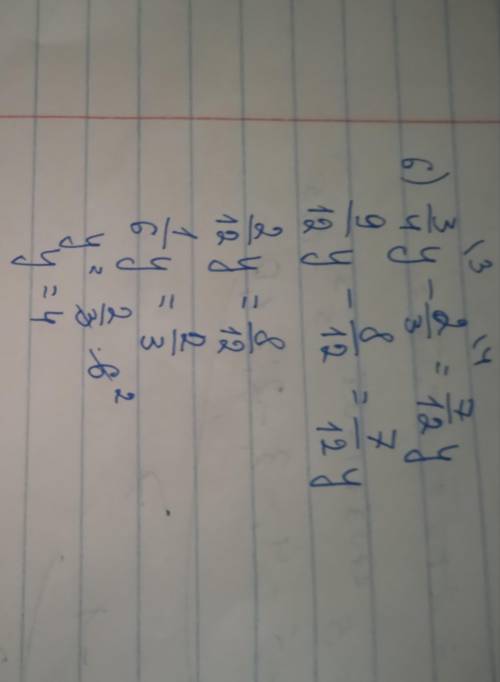 б) 3/4 \3 y - 2/3 \4 = 7/12 y
9/12 y - 8/12 = 7/12 y
2/12 y = 8/12
1/6 y = 2/3
y = 2/3 · 6 2
y = 4